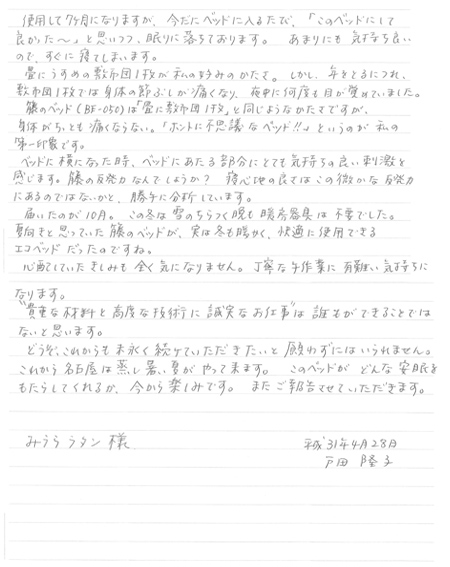 使用して7ケ月になりますが、今だにベッドに入るたび、「このベッドにして
良かった〜」と思いつつ、眠りに落ちております。 あまりにも 気持ち良い
ので、すぐに 寝てしまいます。
畳にうすめの敷布団1枚が私の好みのかたさ。しかし、年をとるにつれ、
敷布団1枚では身体の節ぶしが痛くなり、夜中に何度も目が覚めていました。
籐のベッド(BE-050)は「畳に敷布団1枚」と同じようなかたさですが、
身体がちっとも痛くならない。「ホントに不思議なベッド!!」というのが 私の
第一印象です。
ベッドに横になった時、ベッドにあたる部分にとても気持ちの良い刺激を
感じます。籐の反発力なんでしょうか? 寝心地の良さはこの微かな反発力
にあるのではないかと、勝手に分析しています。
届いたのが10月。この冬は雪のちらつく晩も暖房器具は不要でした。
夏向きと思っていた籐のベッドが、実は冬も暖かく、快適に使用できる
エコベッドだったのですね。
心配していたきしみも全く気になりません。丁寧な手作業に有難い気持ちに
なります。
"貴重な材料と高度な技術に誠実なお仕事"は誰もができることでは
ないと思います。
どうぞ、これからも末永く続けていただきたいと願わずにはいられません。
これから名古屋は蒸し暑い夏がやって来ます。 このベッドが どんな安眠を
もたらしてくれるか、今から楽しみです。 またご報告させていただきます。
みうら ラタン 様
平成31年4月28日
戸田 隆子